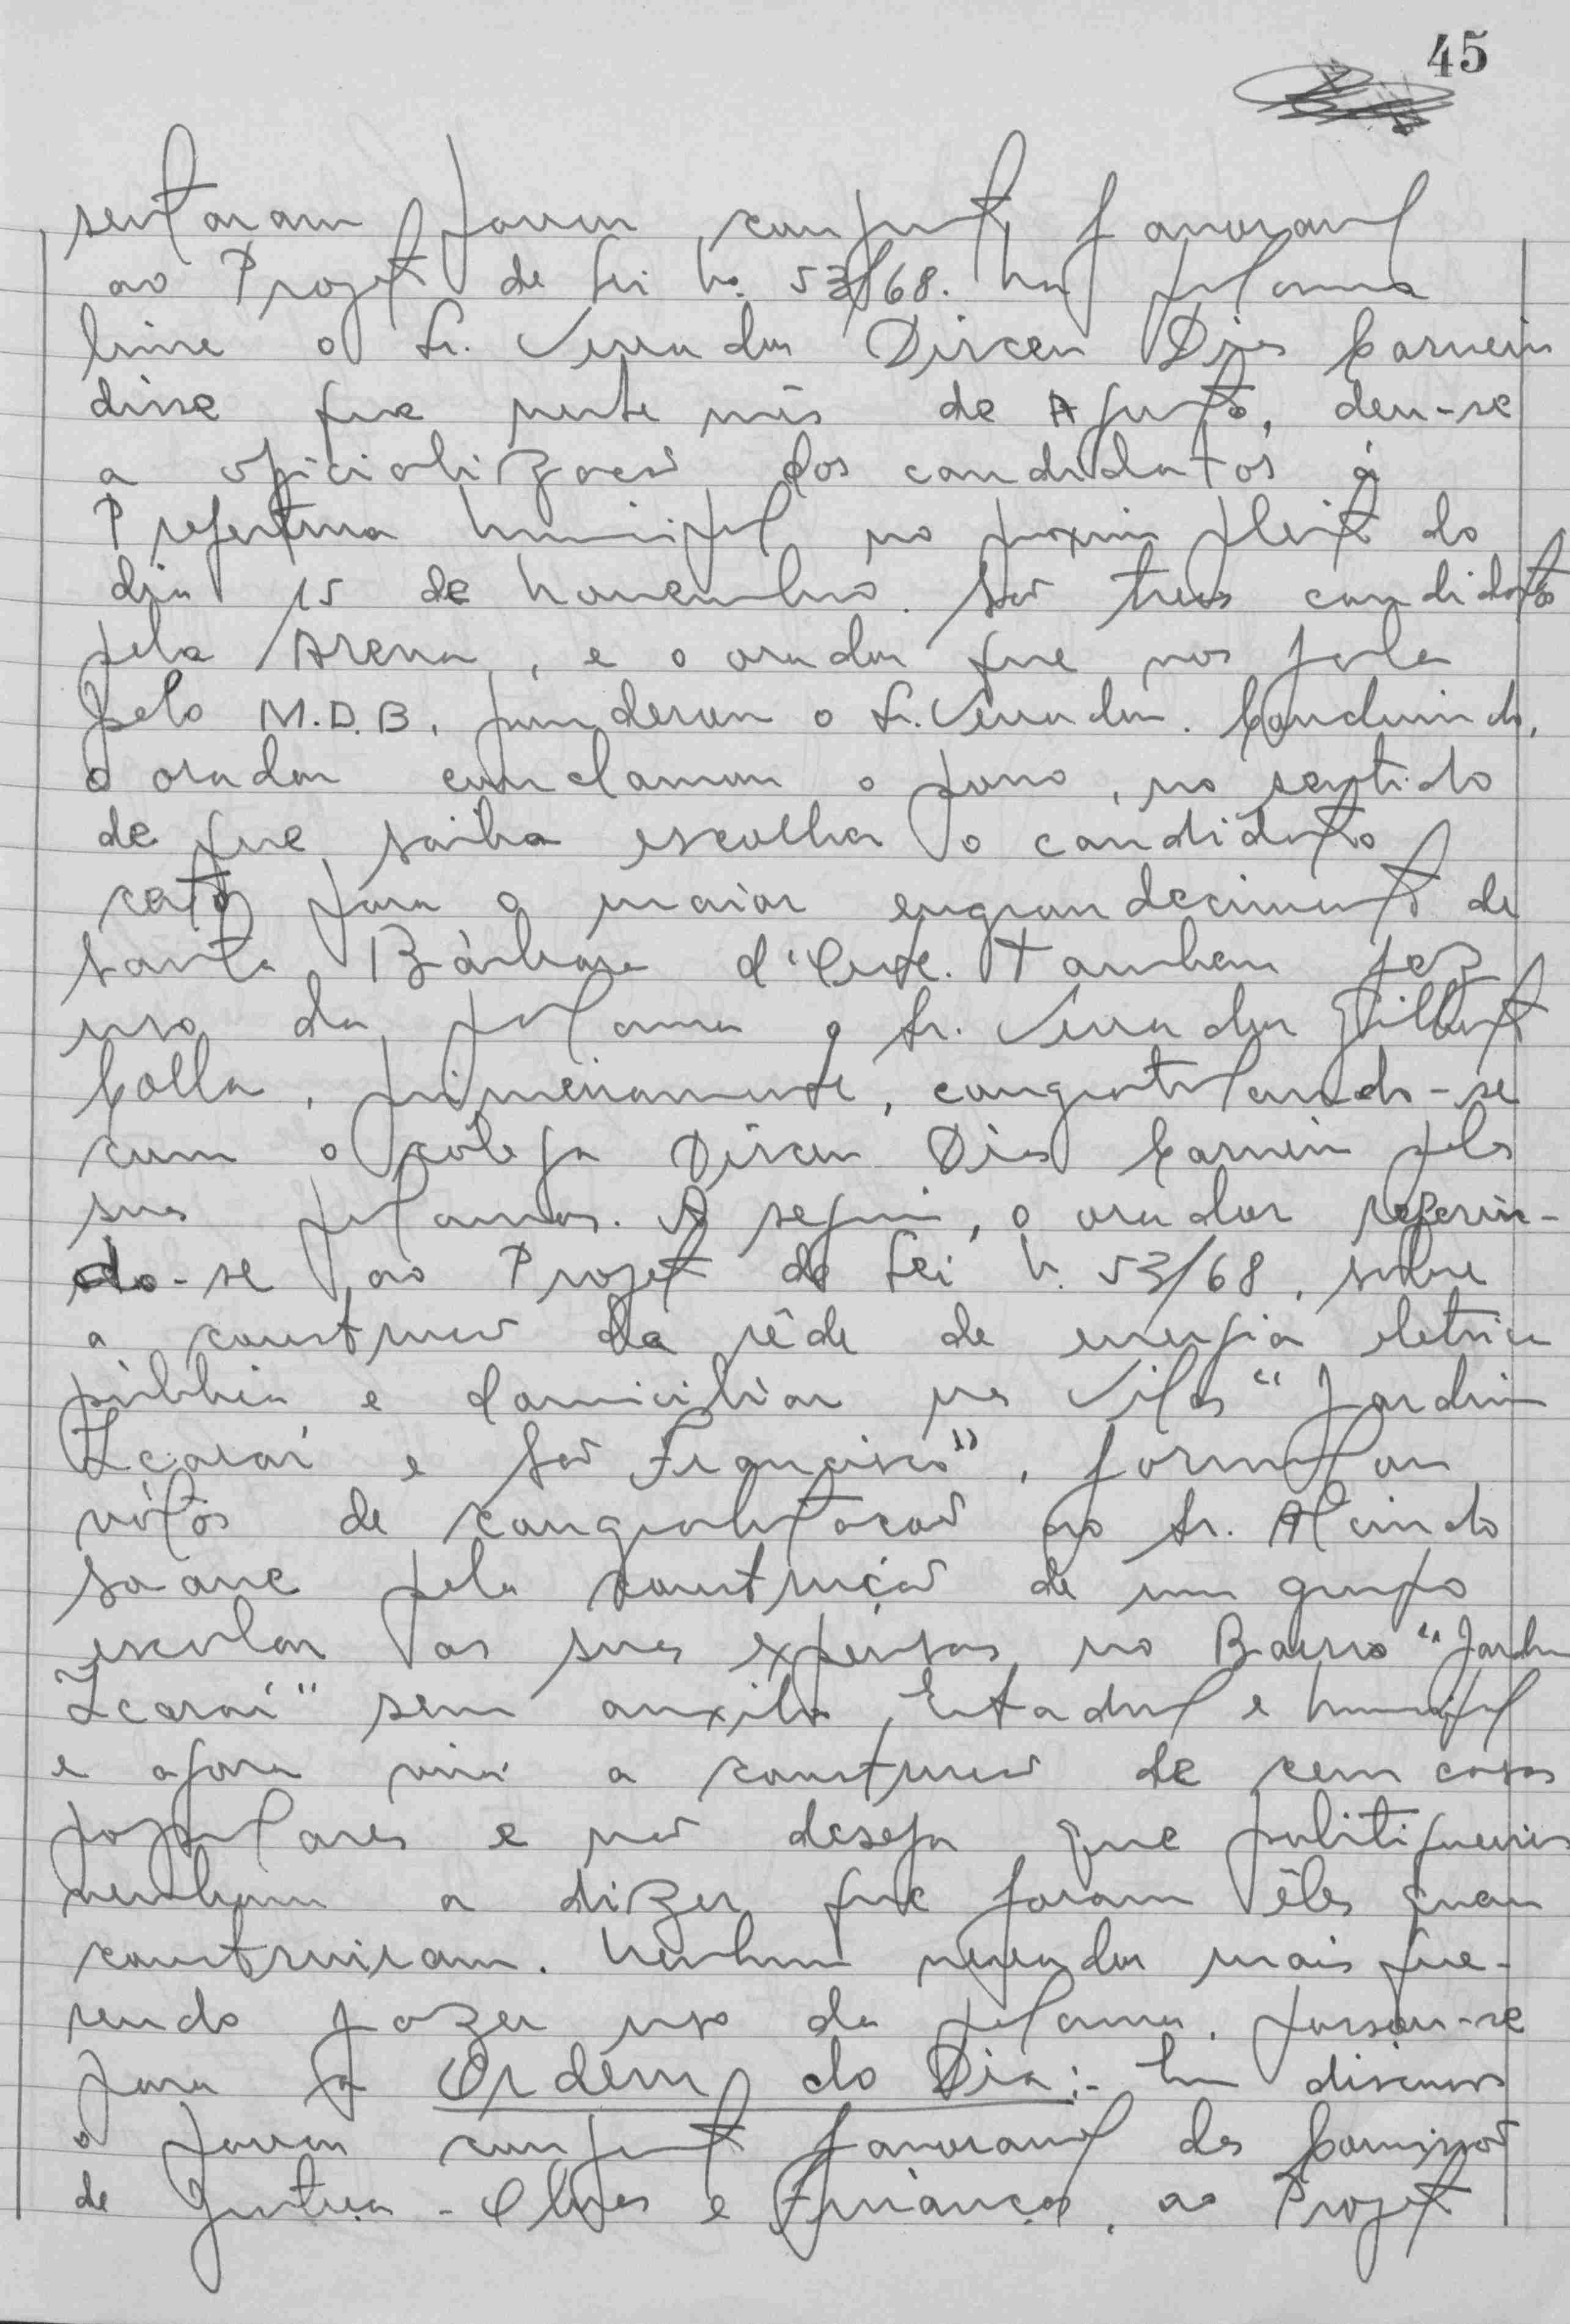 45
sentaram parecer conjunto favoravel
ao Projeto de Lei No. 53/68. Na palavra
livre o Sr. Vereador Dirceu Dias Carneiro
disse que neste mês de Agosto, deu-se
a oficialização dos candidatos á
Prefeitura Municipal no proximo pleito do
dia 15 de Novembro. São tres candidatos
pela Arena, e o orador que nos fala
pelo M.D.B., ponderou o Sr. Vereador. Concluindo,
o orador conclamou o povo, no sentido
de que saiba escolher o candidato
certo para o maior engrandecimento de
Santa Bárbara d'Oeste. Tambem fez
uso da palavra o Sr. Vereador Gilberto
Colla, primeiramente, congratulando-se
com o colega Dirceu Dias Carneiro pelas
suas palavras. A seguir, o orador referin-
do-se ao Projeto de Lei N. 53/68, sobre
a construcao da rêde de energia eletrica
pública e domiciliar nas Vilas "Jardim
Icaraí e São Francisco", formulou
vótos de congratulacao ao Sr. Alcindo
Soave pela construição de um grupo
escolar as suas expensas no Bairro "Jardim
Icaraí" sem auxilio Estadual e Municipal
e agora virá a construcao de cem casas
populares e não deseja que politiqueiros
venham a dizer que foram êles quem
construiram. Nenhum vereador mais que-
rendo fazer uso da palavra, passou-se
para a Ordem do Dia:- Em discussao
o parecer conjunto favoravel das Comissões
de Justiça - Obras e Finanças, ao Projeto